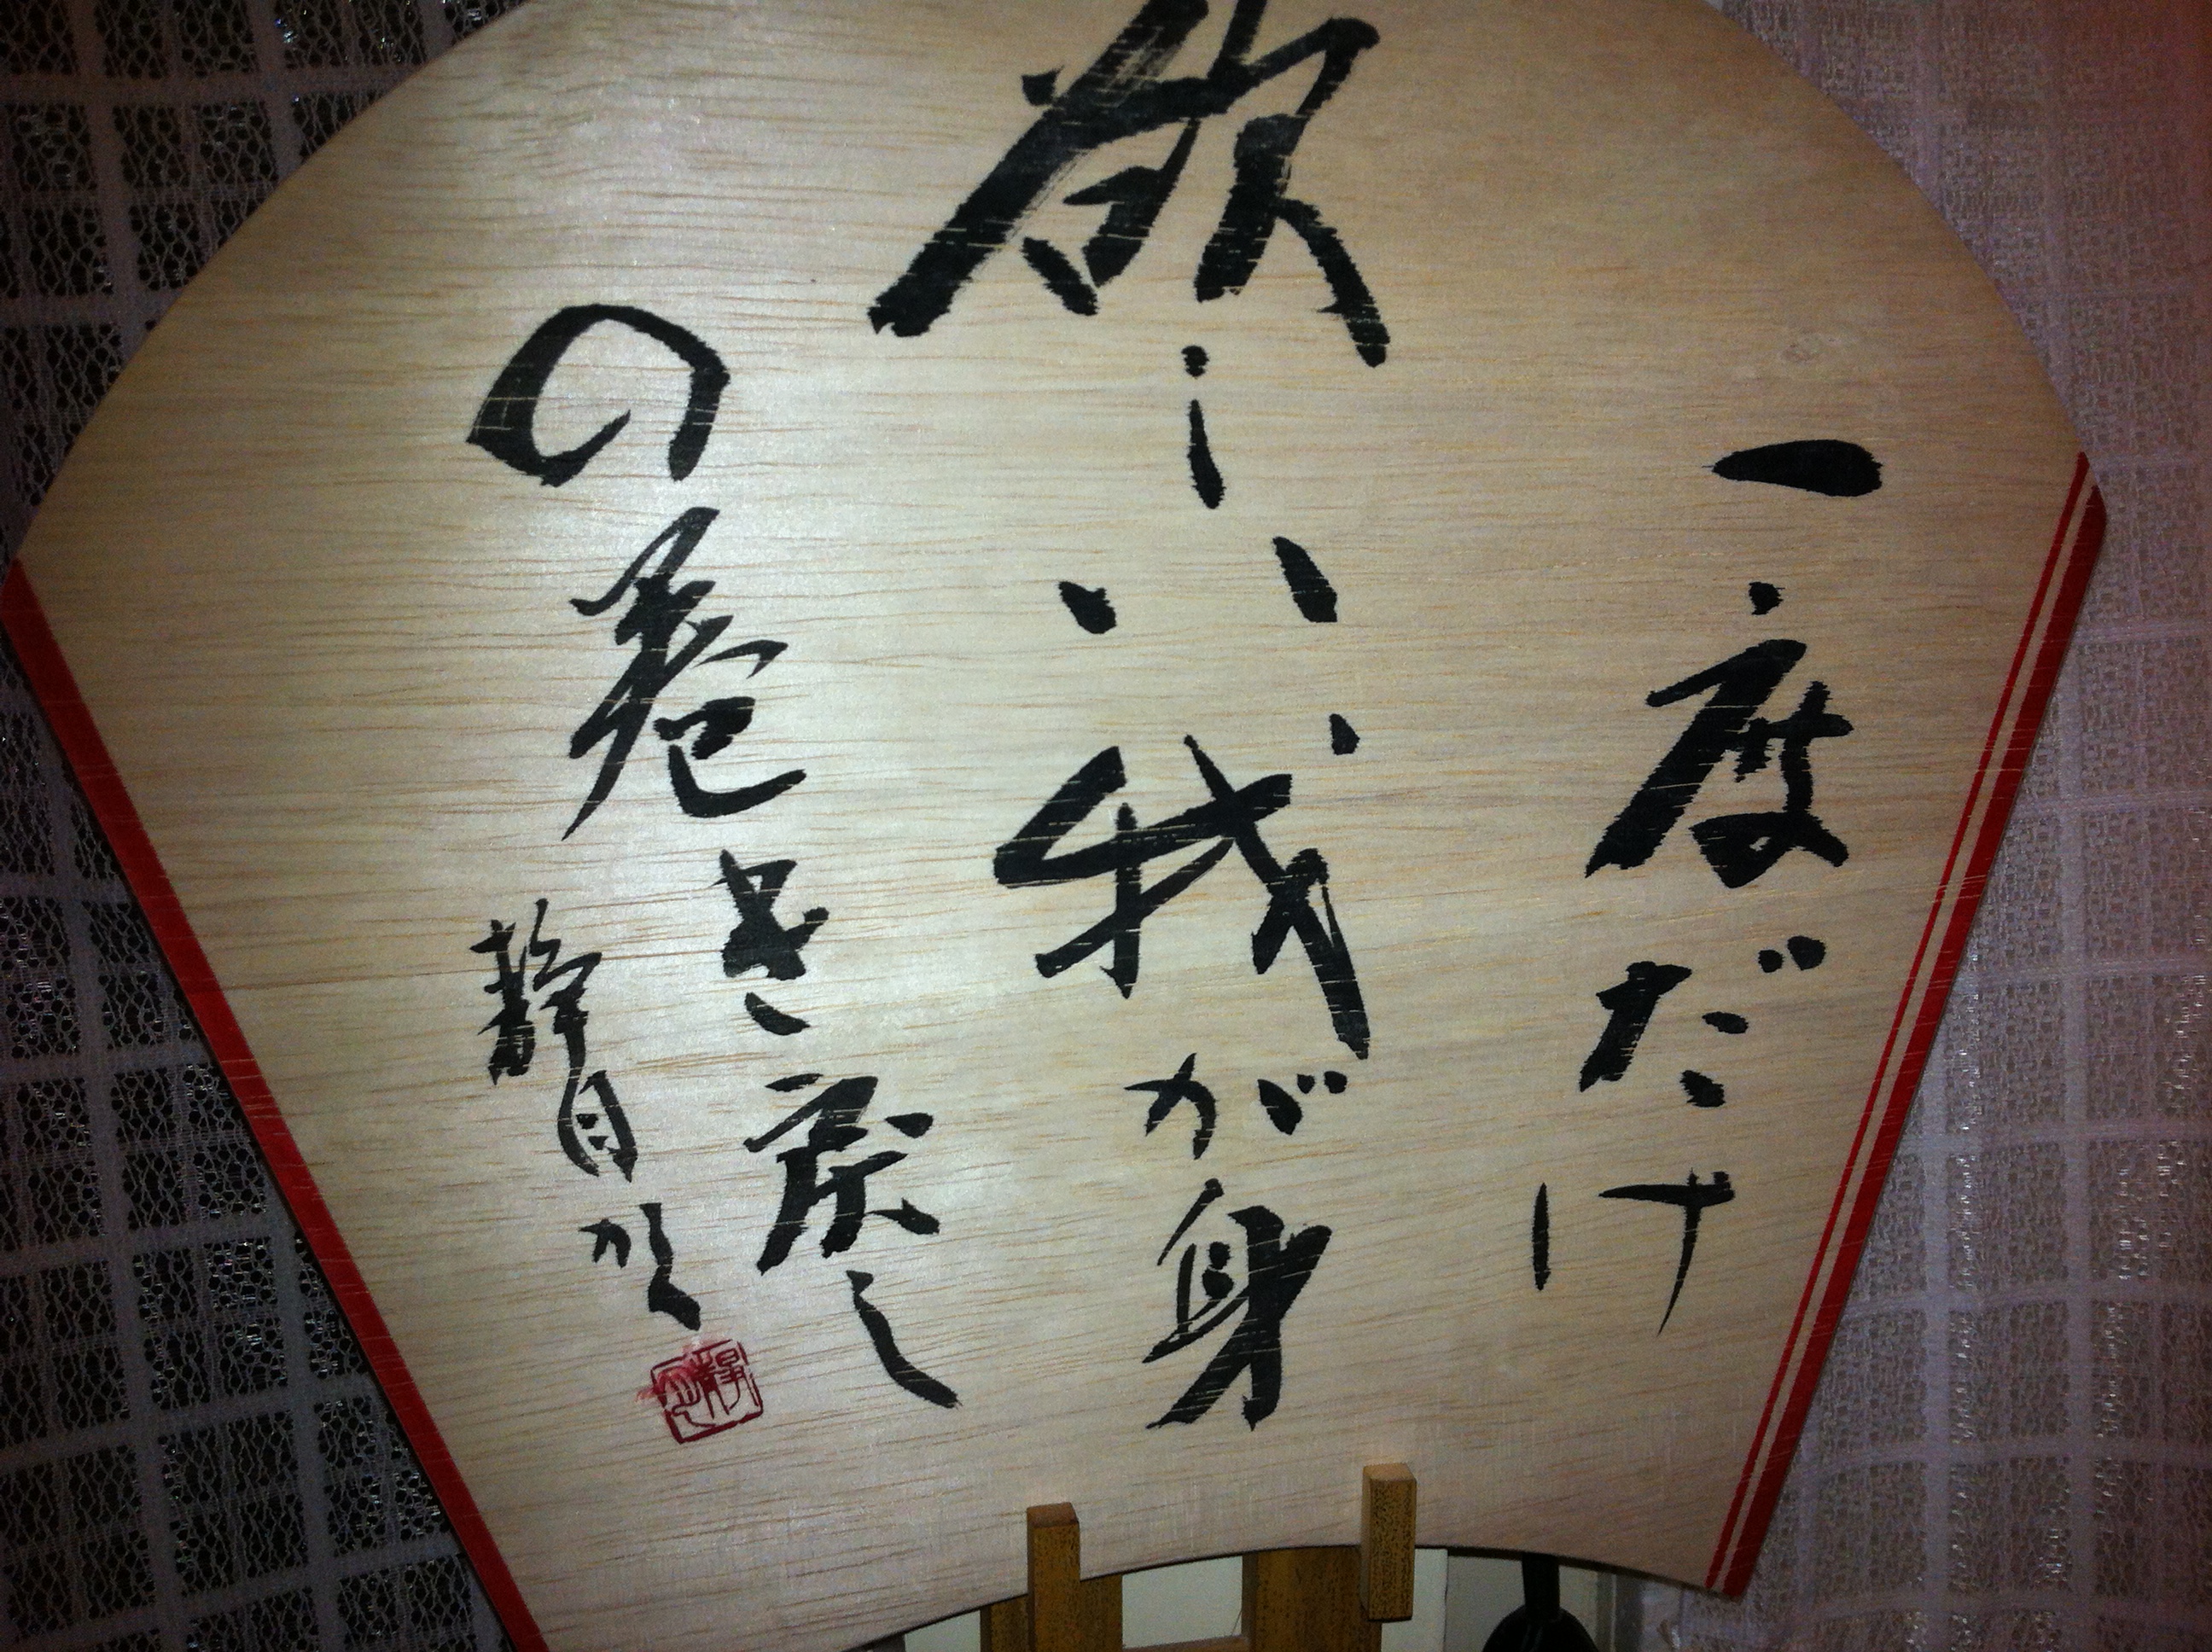 一度だけ
欲しい我が身
の巻き戻し
静